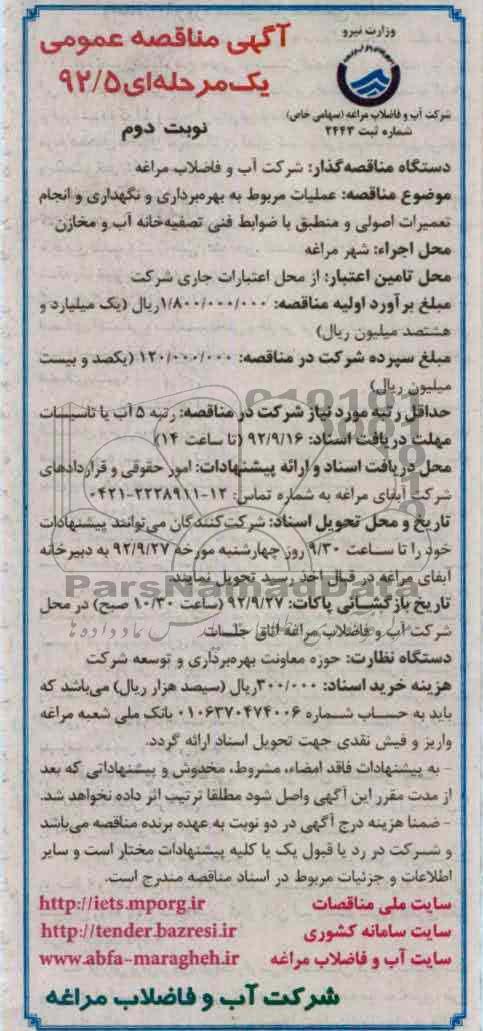 وزارت نیرو
شرکت آب و فاضلاب مراغه (سهامی خاص)
شماره ثبت ۲۴۴۳
آگهی مناقصه عمومی
یک‌مرحله‌ای ۹۲/۵
نوبت دوم
دستگاه مناقصه‌گذار: شرکت آب و فاضلاب مراغه
موضوع مناقصه: عملیات مربوط به بهره‌برداری و نگهداری و انجام
تعمیرات اصولی و منطبق با ضوابط فنی تصفیه‌خانه آب و مخازن
محل اجراء: شهر مراغه
محل تامین اعتبار: از محل اعتبارات جاری شرکت
مبلغ برآورد اولیه مناقصه: ۱/۸۰۰/۰۰۰/۰۰۰ریال (یک میلیارد و
هشتصد میلیون ریال)
مبلغ سپرده شرکت در مناقصه: ۱۲۰/۰۰۰/۰۰۰ (یکصد و بیست
میلیون ریال)
حداقل رتبه مورد نیاز شرکت در مناقصه: رتبه ۵ آب یا تاسیسات
مهلت دریافت اسناد: ۹۲/۹/۱۶ (تا ساعت ۱۴)
محل دریافت اسناد و ارائه پیشنهادات: امور حقوقی و قراردادهای
شرکت آبفای مراغه به شماره تماس: ۱۳-۲۲۲۸۹۱۱-۰۴۲۱
تاریخ و محل تحویل اسناد: شرکت‌کنندگان می‌توانند پیشنهادات
خود را تا ساعت ۹/۳۰ روز چهارشنبه مورخه ۹۲/۹/۲۷ به دبیرخانه
آبفای مراغه در قبال اخذ رسید تحویل نمایند.
ParsNamadData
تاریخ بازگشائی پاکات: ۹۲/۹/۲۷ (ساعت ۱۰/۳۰ صبح) در محل
شرکت آب و فاضلاب مراغه اتاق جلسات.
دستگاه نظارت: حوزه معاونت بهره‌برداری و توسعه شرکت
هزینه خرید اسناد: ۳۰۰/۰۰۰ریال (سیصد هزار ریال) می‌باشد که
باید به حساب شماره ۰۱۰۶۳۷۰۴۷۴۰۰۶ بانک ملی شعبه مراغه
واریز و فیش نقدی جهت تحویل اسناد ارائه گردد.
- به پیشنهادات فاقد امضاء، مشروط، مخدوش و پیشنهاداتی که بعد
از مدت مقرر این آگهی واصل شود مطلقا ترتیب اثر داده نخواهد شد.
- ضمنا هزینه درج آگهی در دو نوبت به عهده برنده مناقصه می‌باشد
و شرکت در رد یا قبول یک یا کلیه پیشنهادات مختار است و سایر
اطلاعات و جزئیات مربوط در اسناد مناقصه مندرج است.
سایت ملی مناقصات http://iets.mporg.ir
سایت سامانه کشوری http://tender.bazresi.ir
سایت آب و فاضلاب مراغه www.abfa-maragheh.ir
شرکت آب و فاضلاب مراغه